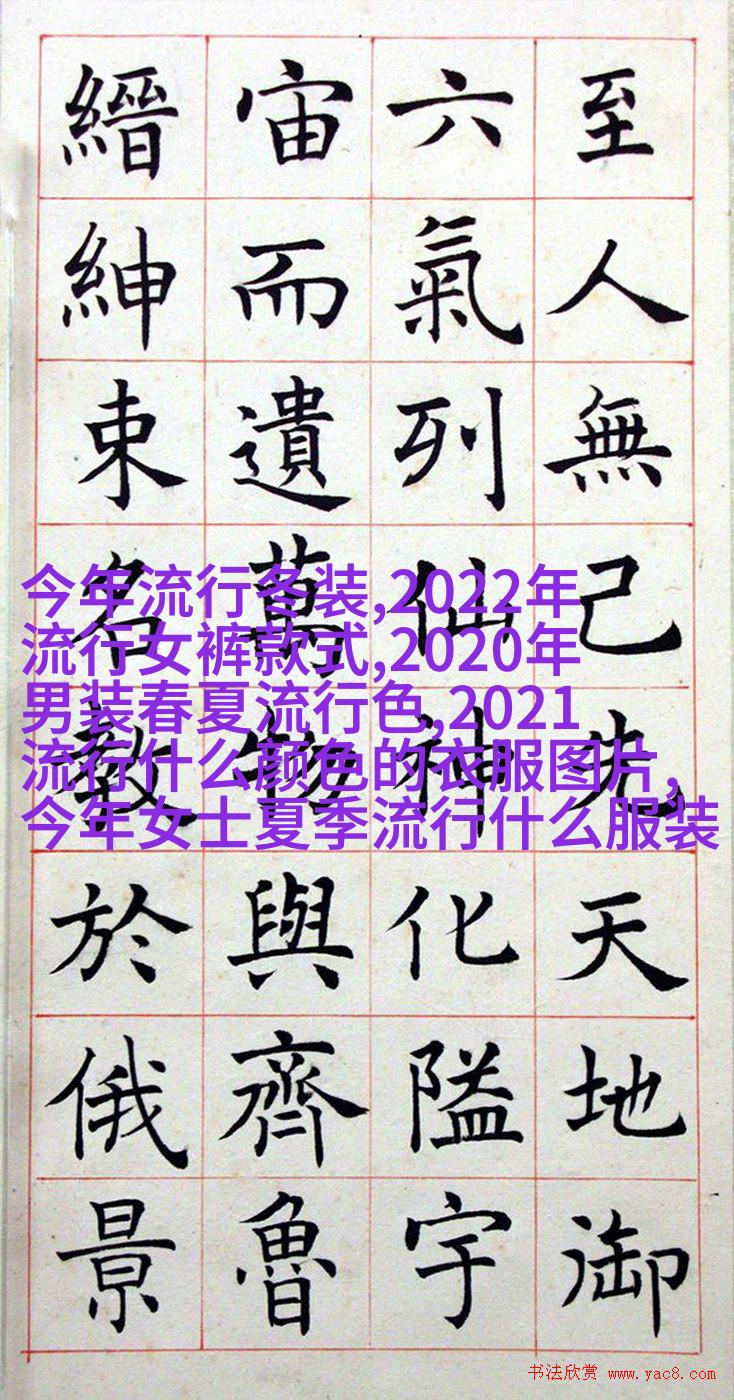 至人無己先天地御
六氣列仙神化隘宇
宙而遺萬物與齊魯
縉紳束名教於俄景
今年流行冬装,2022年
流行女裤款式,2020年
男装春夏流行色,2021
流行什么颜色的衣服图片,
今年女士夏季流行什么服装
书法欣赏 www.yac8.com